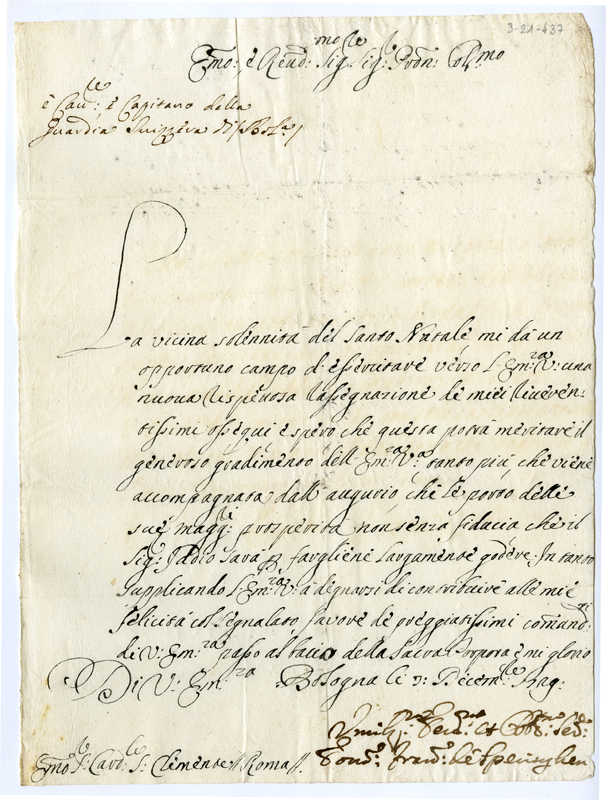 3-21-437
Emo: è Reud: mo Sig. re Sig: re Prōn: Col. mo
è Cau: le; è Capitano della
Guardia Suizzera di Bola
La vicina solennità del Santo Natale, mi dà un
opportuno campo d'essercitare verso L'Em: za V: una
nuoua rispettosa rassegnazione de miei riueren:
tissimi ossequi, e spero che questa potrà meritare il
generoso gradimento dell'Em: za V: a tanto più, che viene
accompagnata dall'augurio, che Le porto delle
sue magg: ri prosperità non senza fiducia che il
Sig: Iddio sarà p fargliene largamente godere. In tanto
supplicando L'Em: za V: a degnarsi di contribuire alle mie
felicità col segnalato fauore de preggiatissimi comand: ti
di V: Em: za passo al bacio della Sacra Porpora è mi glorio
Di V: Em: za Bologna li Decem: re
Vmil: mo Deu: mo et Obb: mo Ser: re
Emo S: r Card: le S: Clemente // Roma //.